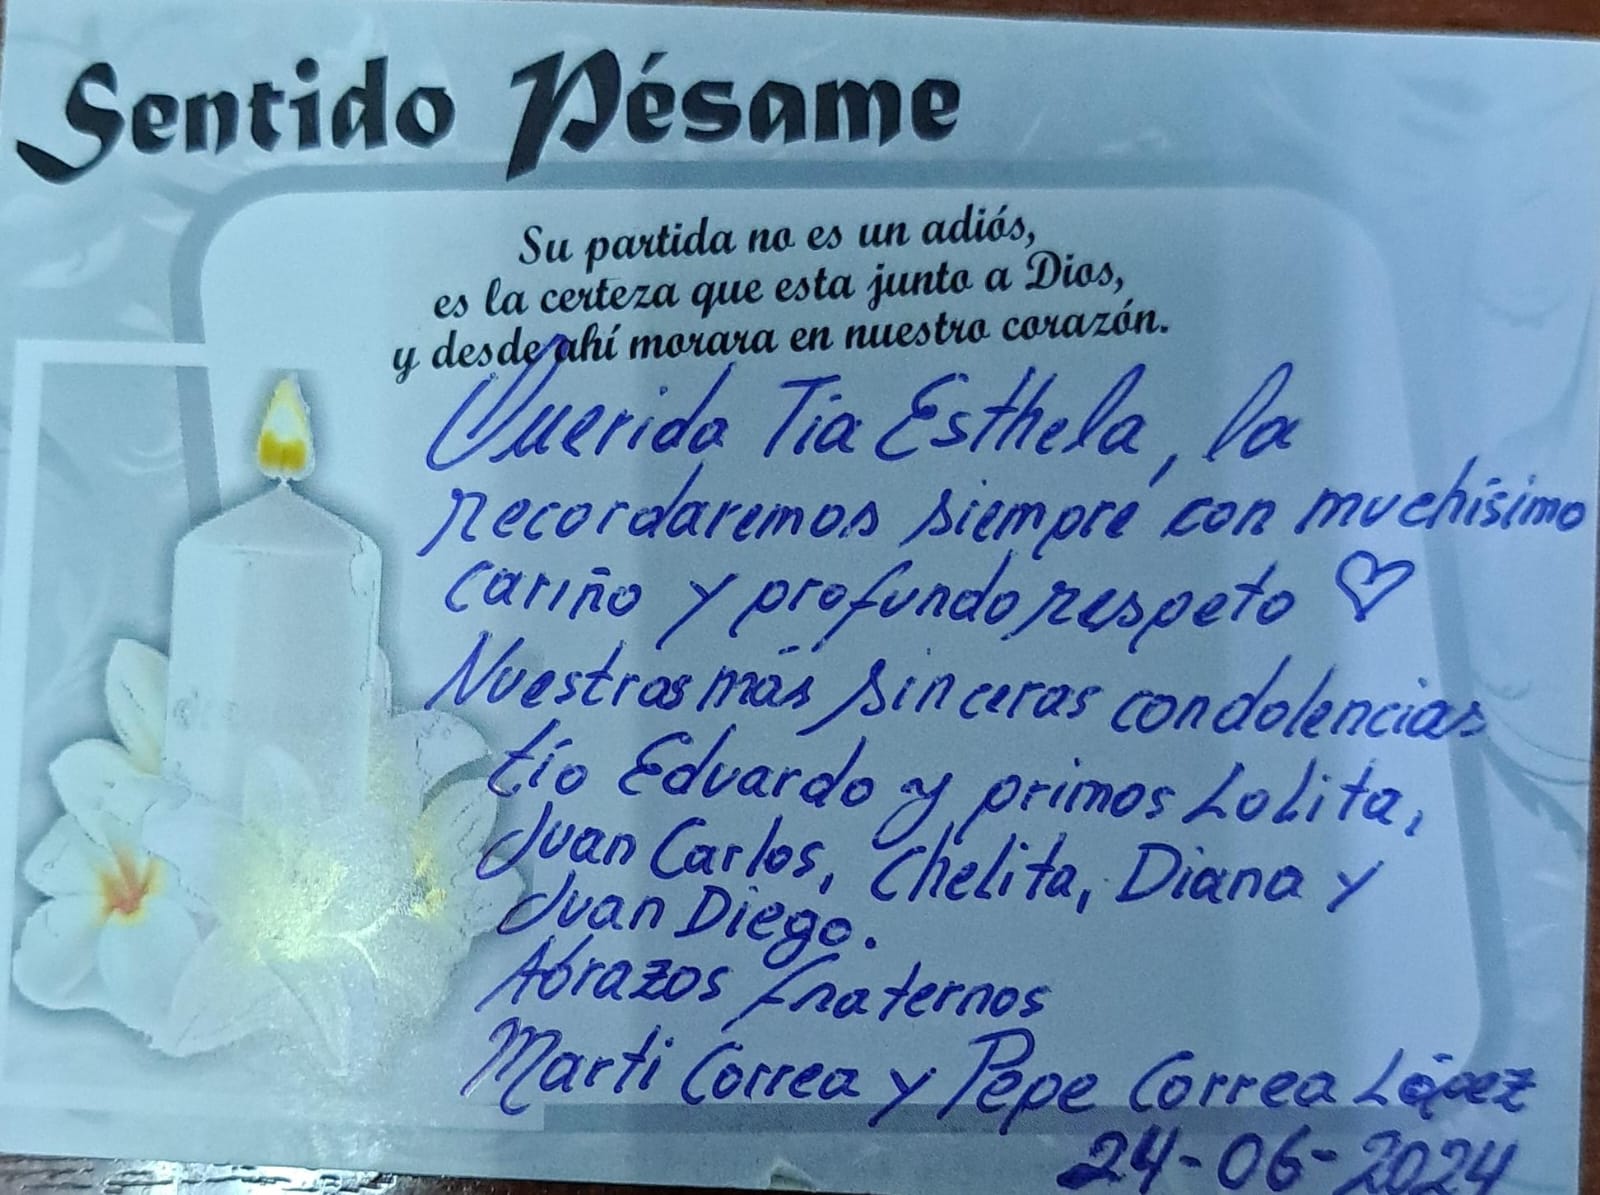 Sentido Pésame
Su partida no es un adiós,
es la certeza que esta junto a Dios,
y desde ahí morara en nuestro corazón.
Querida Tía Esthela, la
recordaremos siempre con muchísimo
cariño y profundo respeto ♡
Nuestras más sinceras condolencias
tío Eduardo y primos Lolita,
Juan Carlos, Chelita, Diana y
Juan Diego.
Abrazos fraternos
Marti Correa y Pepe Correa López
24-06-2024